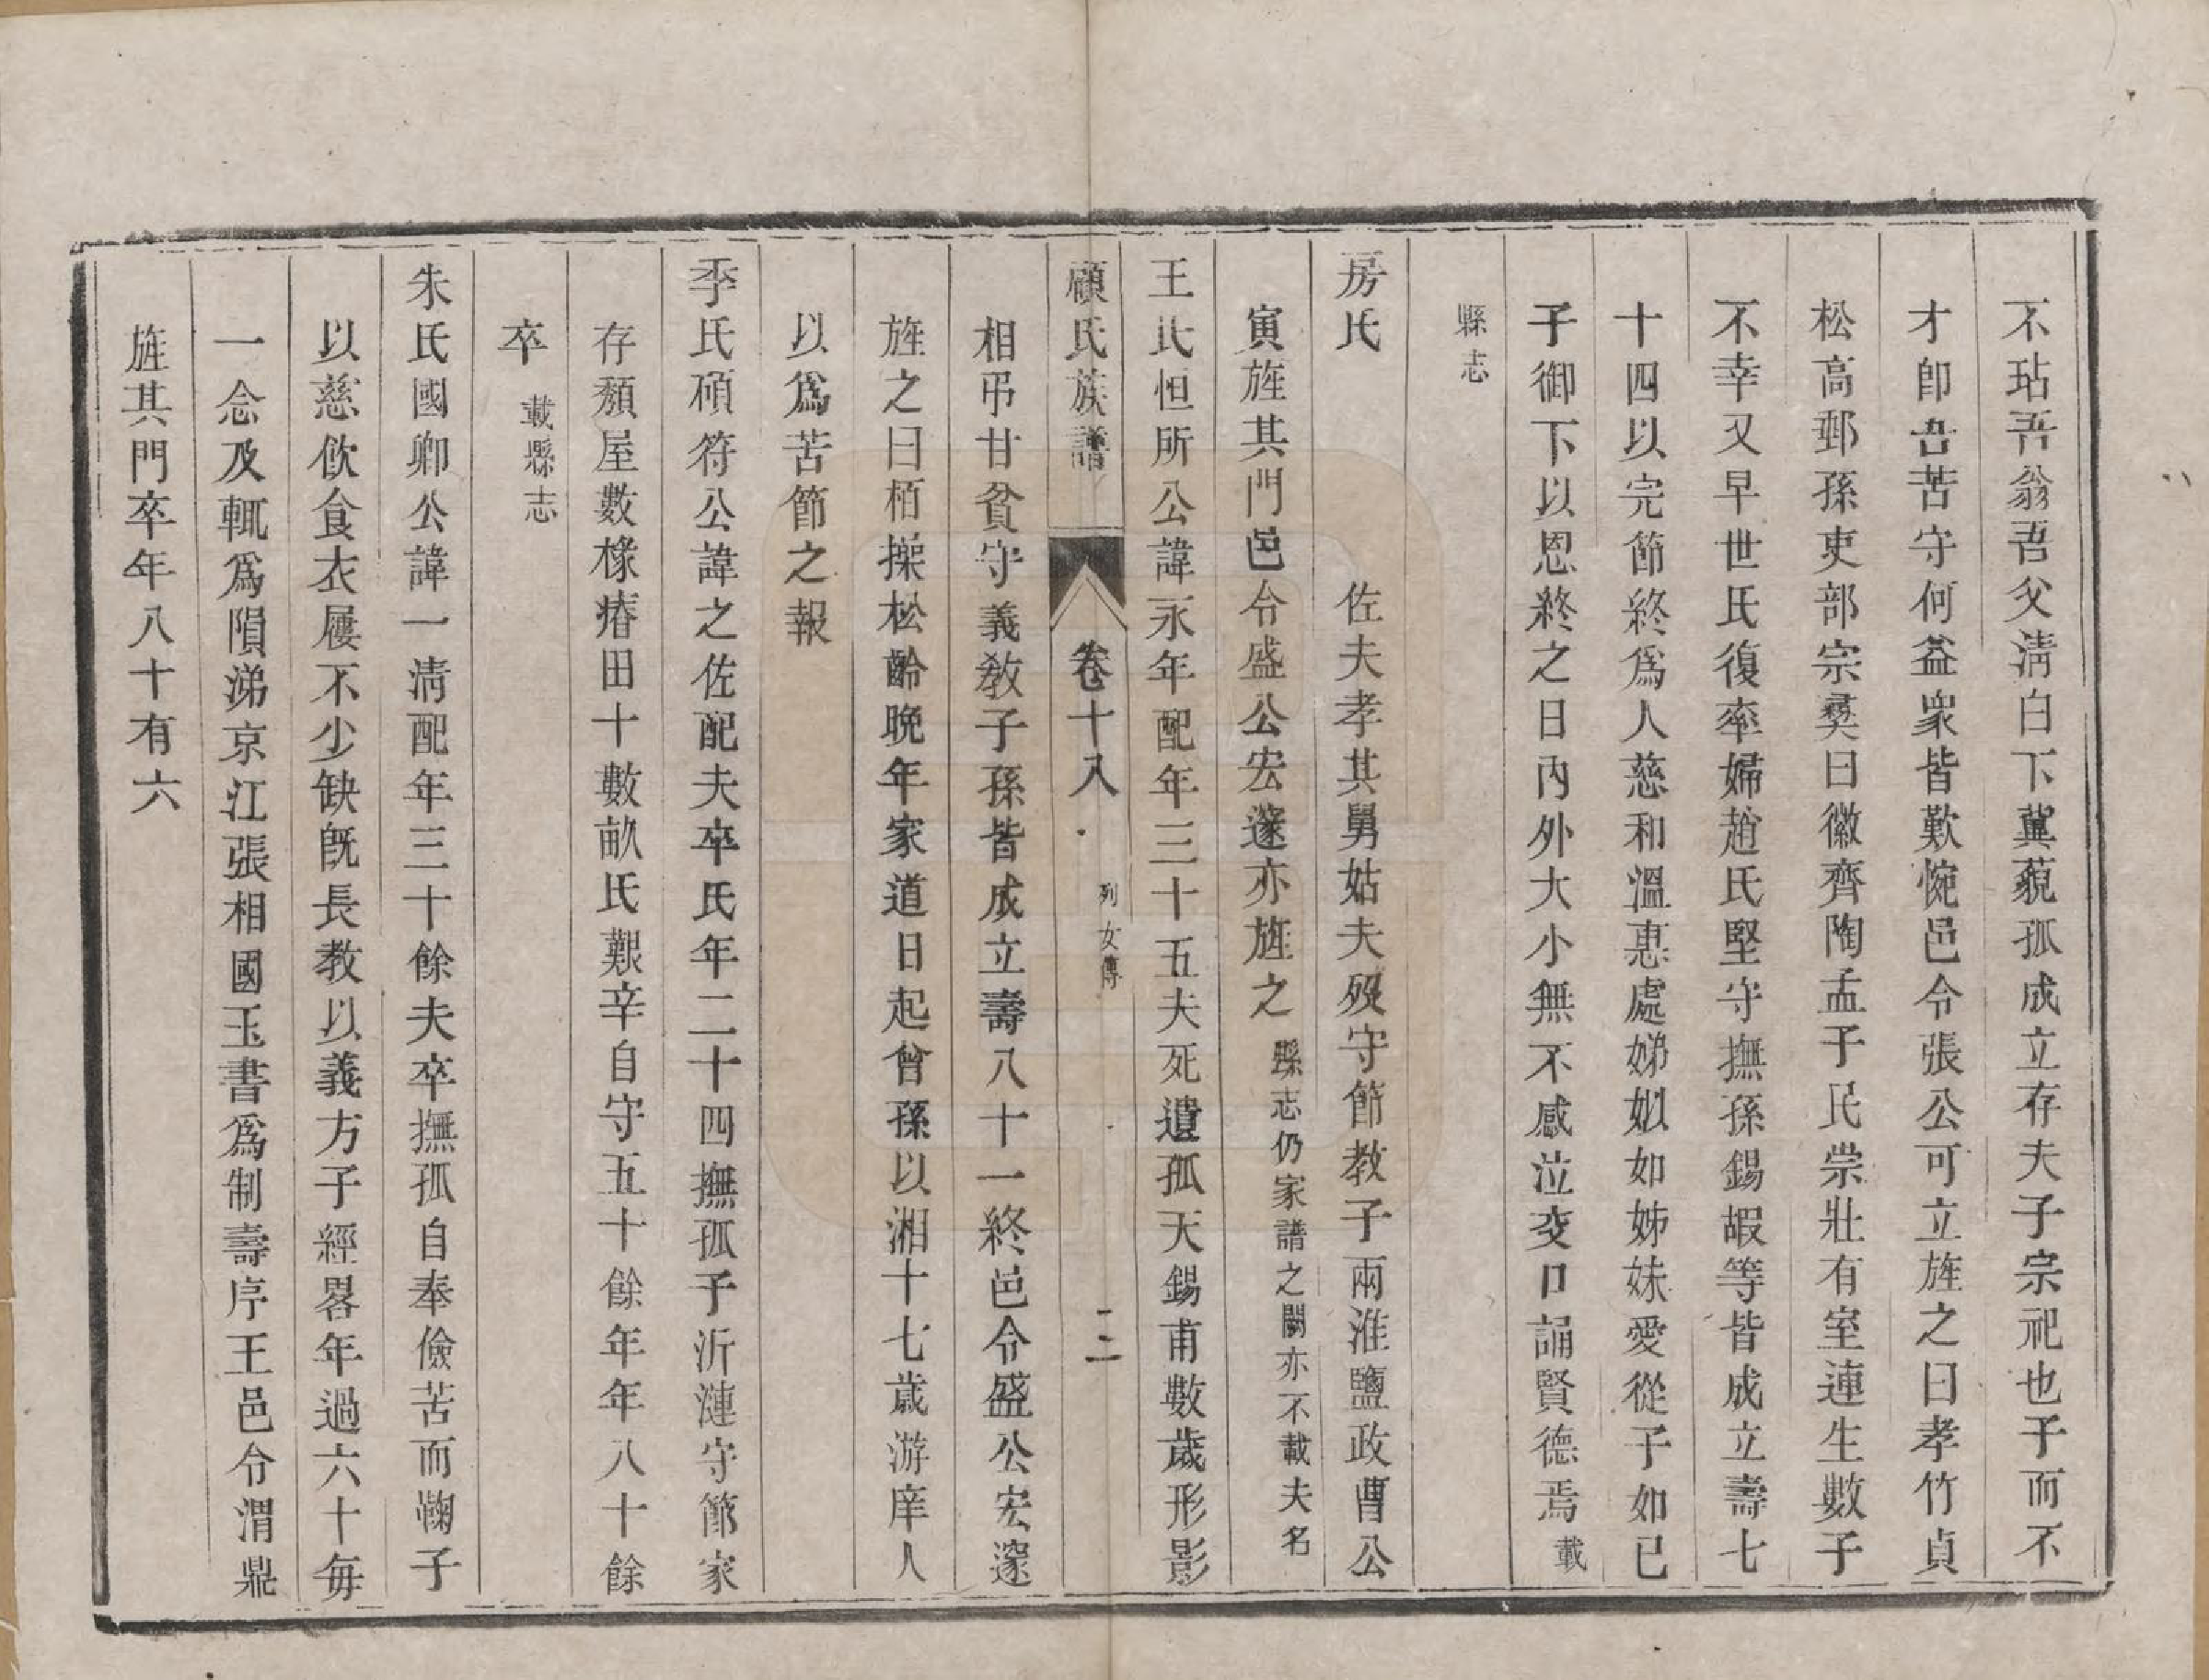 不玷吾翁吾父淸白下冀藐孤成立存夫子宗祀也子而不
才卽吾苦守何益衆皆歎惋邑令張公可立旌之曰孝竹貞
松高郵孫吏部宗彝曰徽齊陶孟子民崇壯有室連生數子
不幸又早世氏復率婦趙氏堅守撫孫錫嘏等皆成立壽七
十四以完節終爲人慈和溫惠處娣姒如姊妹愛從子如己
子御下以恩終之日內外大小無不感泣交口誦賢德焉 載
縣志
房氏 佐夫孝其舅姑夫歿守節教子兩淮鹽政曹公
寅旌其門邑令盛公宏邃亦旌之 縣志仍家譜之闕亦不載夫名
王氏恒所公諱永年配年三十五夫死遺孤天錫甫數歲形影
顧氏族譜 卷十八 列女傳 二
相弔甘貧守義敎子孫皆成立壽八十一終邑令盛公宏邃
旌之曰栢操松齡晚年家道日起曾孫以湘十七歲游庠人
以爲苦節之報
季氏碩符公諱之佐配夫卒氏年二十四撫孤子沂漣守節家
存頽屋數椽瘠田十數畝氏艱辛自守五十餘年年八十餘
卒 載縣志
朱氏國卿公諱一淸配年三十餘夫卒撫孤自奉儉苦而鞠子
以慈飮食衣屨不少缺旣長教以義方子經畧年過六十每
一念及輒爲隕涕京江張相國玉書爲制壽序王邑令渭鼎
旌其門卒年八十有六